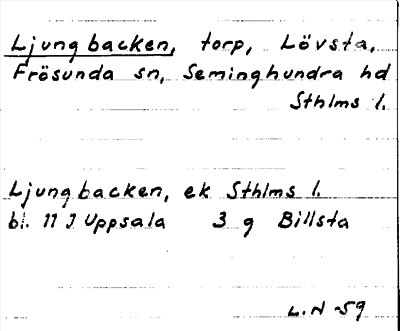 Ljungbacken, torp, Lövsta,
Frösunda sn, Seminghundra hd
Sthlms l.
Ljungbacken, ek Sthlms l.
bl. 11 I Uppsala 3 g Billsta
L.N -59